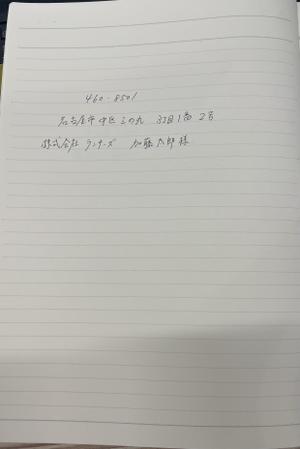 460-8501
名古屋市中区三の丸 3丁目1番2号
株式会社ランサーズ 加藤太郎様